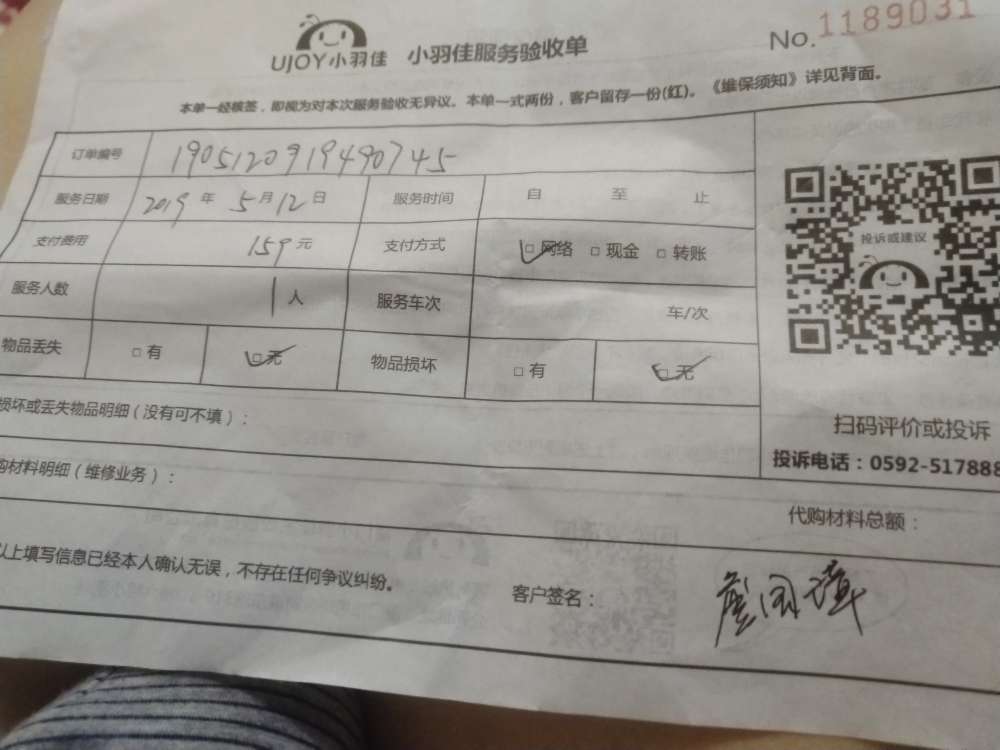 UJOY小羽佳 小羽佳服务验收单 No. 1189031
本单一经核签，即视为对本次服务验收无异议。本单一式两份，客户留存一份(红)。《维保须知》详见背面。
订单编号 1905120919490745
服务日期 2019 年 5 月 12 日 服务时间 自 至 止
支付费用 159 元 支付方式 □网络 □现金 □转账
服务人数 1 人 服务车次 车/次
物品丢失 □有 □无 物品损坏 □有 □无
投诉或建议
扫码评价或投诉
投诉电话：0592-517888
损坏或丢失物品明细（没有可不填）：
购材料明细（维修业务）：
代购材料总额：
以上填写信息已经本人确认无误，不存在任何争议纠纷。
客户签名：